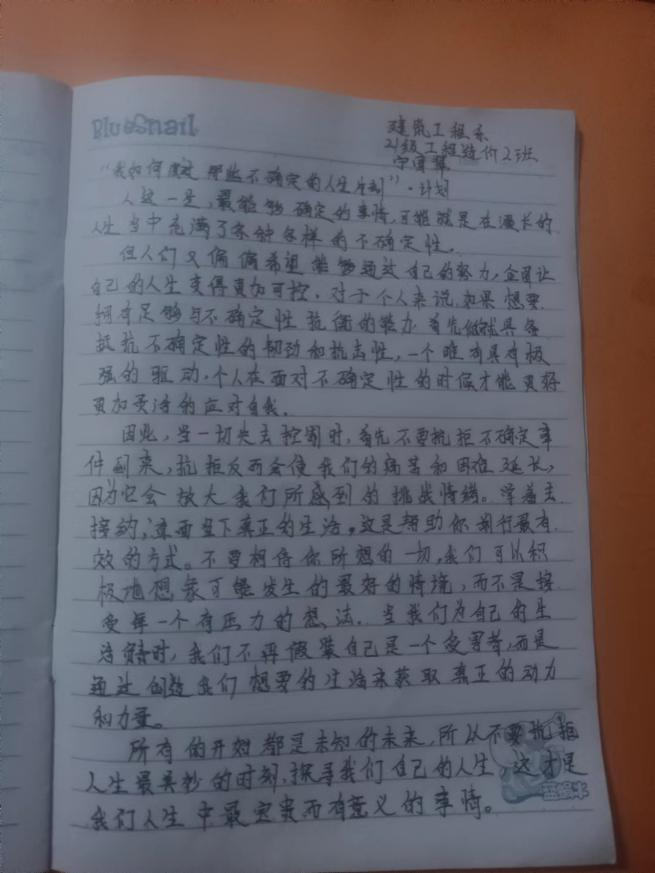 BlueSnail
建筑工程系
21级工程造价2班
“我如何度过那些不确定的人生时刻”·计划
人这一生,最能够确定的事情,可能就是在漫长的
人生当中充满了各种各样的不确定性。
但人们又偏偏希望能够通过自己的努力,企图让
自己的人生变得更加可控。对于个人来说,如果想要
拥有足够与不确定性抗衡的能力,首先就具备
抵抗不确定性的韧劲和抗击性,一个唯有具有极
强的驱动,个人在面对不确定性的时候才能更好
更加灵活的应对自我。
因此,当一切失去控制时,首先不要抗拒不确定事
件到来,抗拒反而会使我们的痛苦和困难延长,
因为它会放大我们所感到的挑战情绪。学着去
接纳,直面当下真正的生活。这是帮助你前行最有
效的方式。不要相信你所想的一切,我们可以积
极地想象可能发生的最好的情境,而不是接
受每一个有压力的想法。当我们为自己的生
活负责时,我们不再假装自己是一个受害者,而是
通过创造我们想要的生活来获取真正的动力
和力量。
所有的开始都是未知的未来,所以不要抗拒
人生最美妙的时刻,探寻我们自己的人生,这才是
我们人生中最宝贵而有意义的事情。
蓝蜗牛